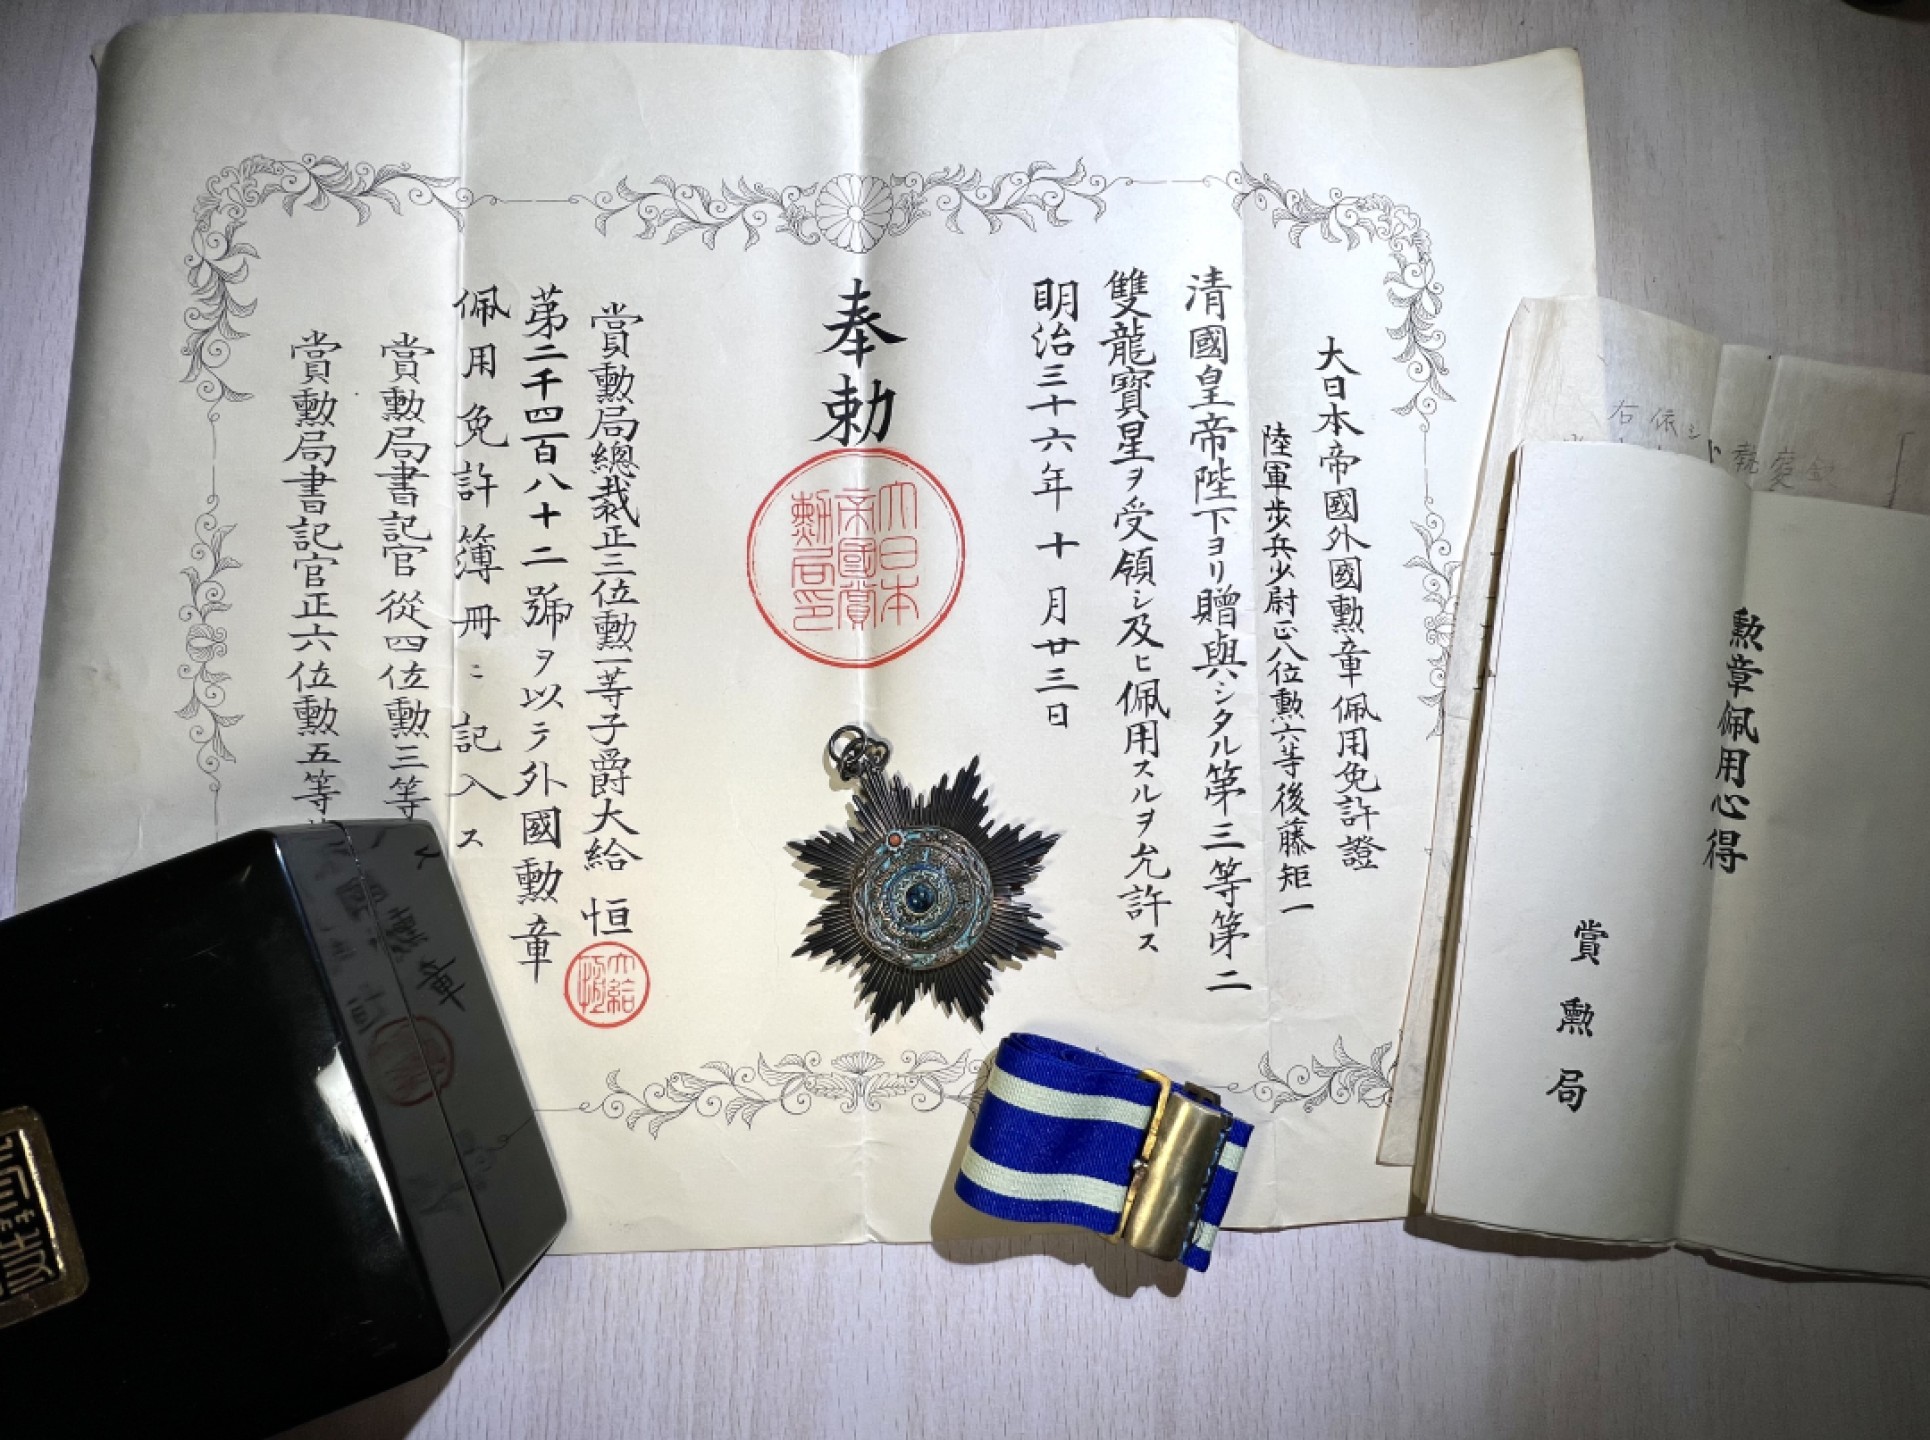 大日本帝國外國勲章佩用免許證
陸軍歩兵少尉正八位勲六等後藤矩一
清國皇帝陛下ヨリ贈與シタル第三等第二
雙龍寶星ヲ受領シ及ヒ佩用スルヲ允許ス
明治三十六年十月廿三日
奉勅
大日本
帝國賞
勲局印
賞勲局總裁正三位勲一等子爵大給恒
大給
恒
第二千四百八十二號ヲ以テ外國勲章
佩用免許簿冊ニ記入ス
賞勲局書記官從四位勲三等
賞勲局書記官正六位勲五等
勲章佩用心得
賞勲局